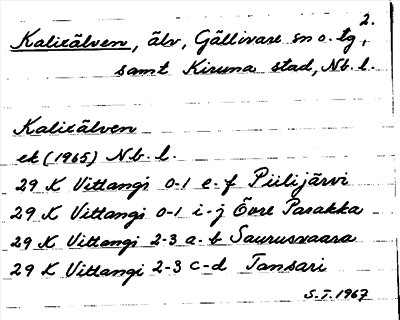 2.
Kalixälven, älv, Gällivare sn o. tg,
samt Kiruna stad, Nb. l.
Kalixälven
ek (1965) Nb. l.
29 K Vittangi 0-1 e-f Piilijärvi
29 K Vittangi 0-1 i-j Övre Parakka
29 K Vittangi 2-3 a-b Saurusvaara
29 K Vittangi 2-3 c-d Tansari
S.I. 1967